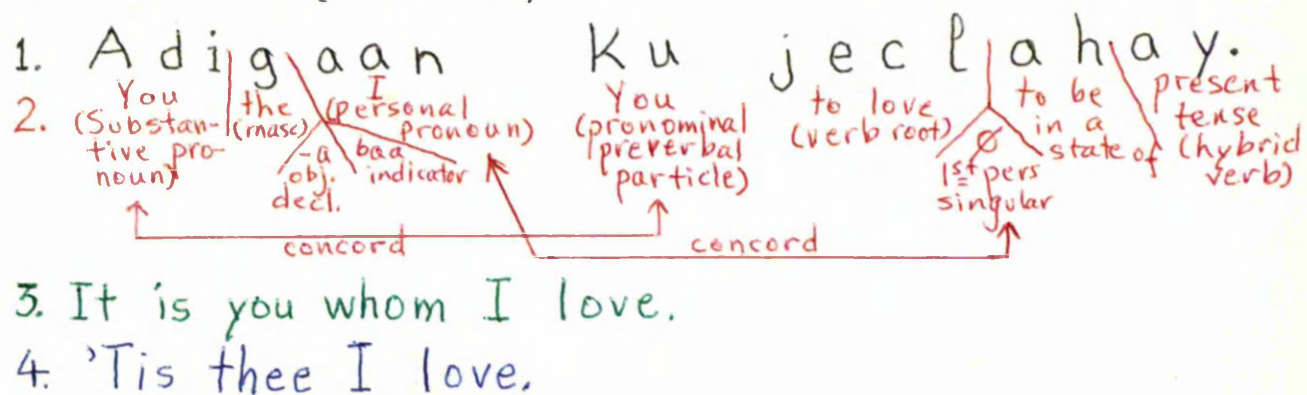 1. Adigaan Ku jeclahay.
2. You (Substantive pronoun) the (masc) I (personal pronoun) -a obj. decl. baa indicator You (pronominal preverbal particle) to love (verb root) Ø 1st pers singular to be in a state of present tense (hybrid verb)
concord concord
3. It is you whom I love.
4. 'Tis thee I love.